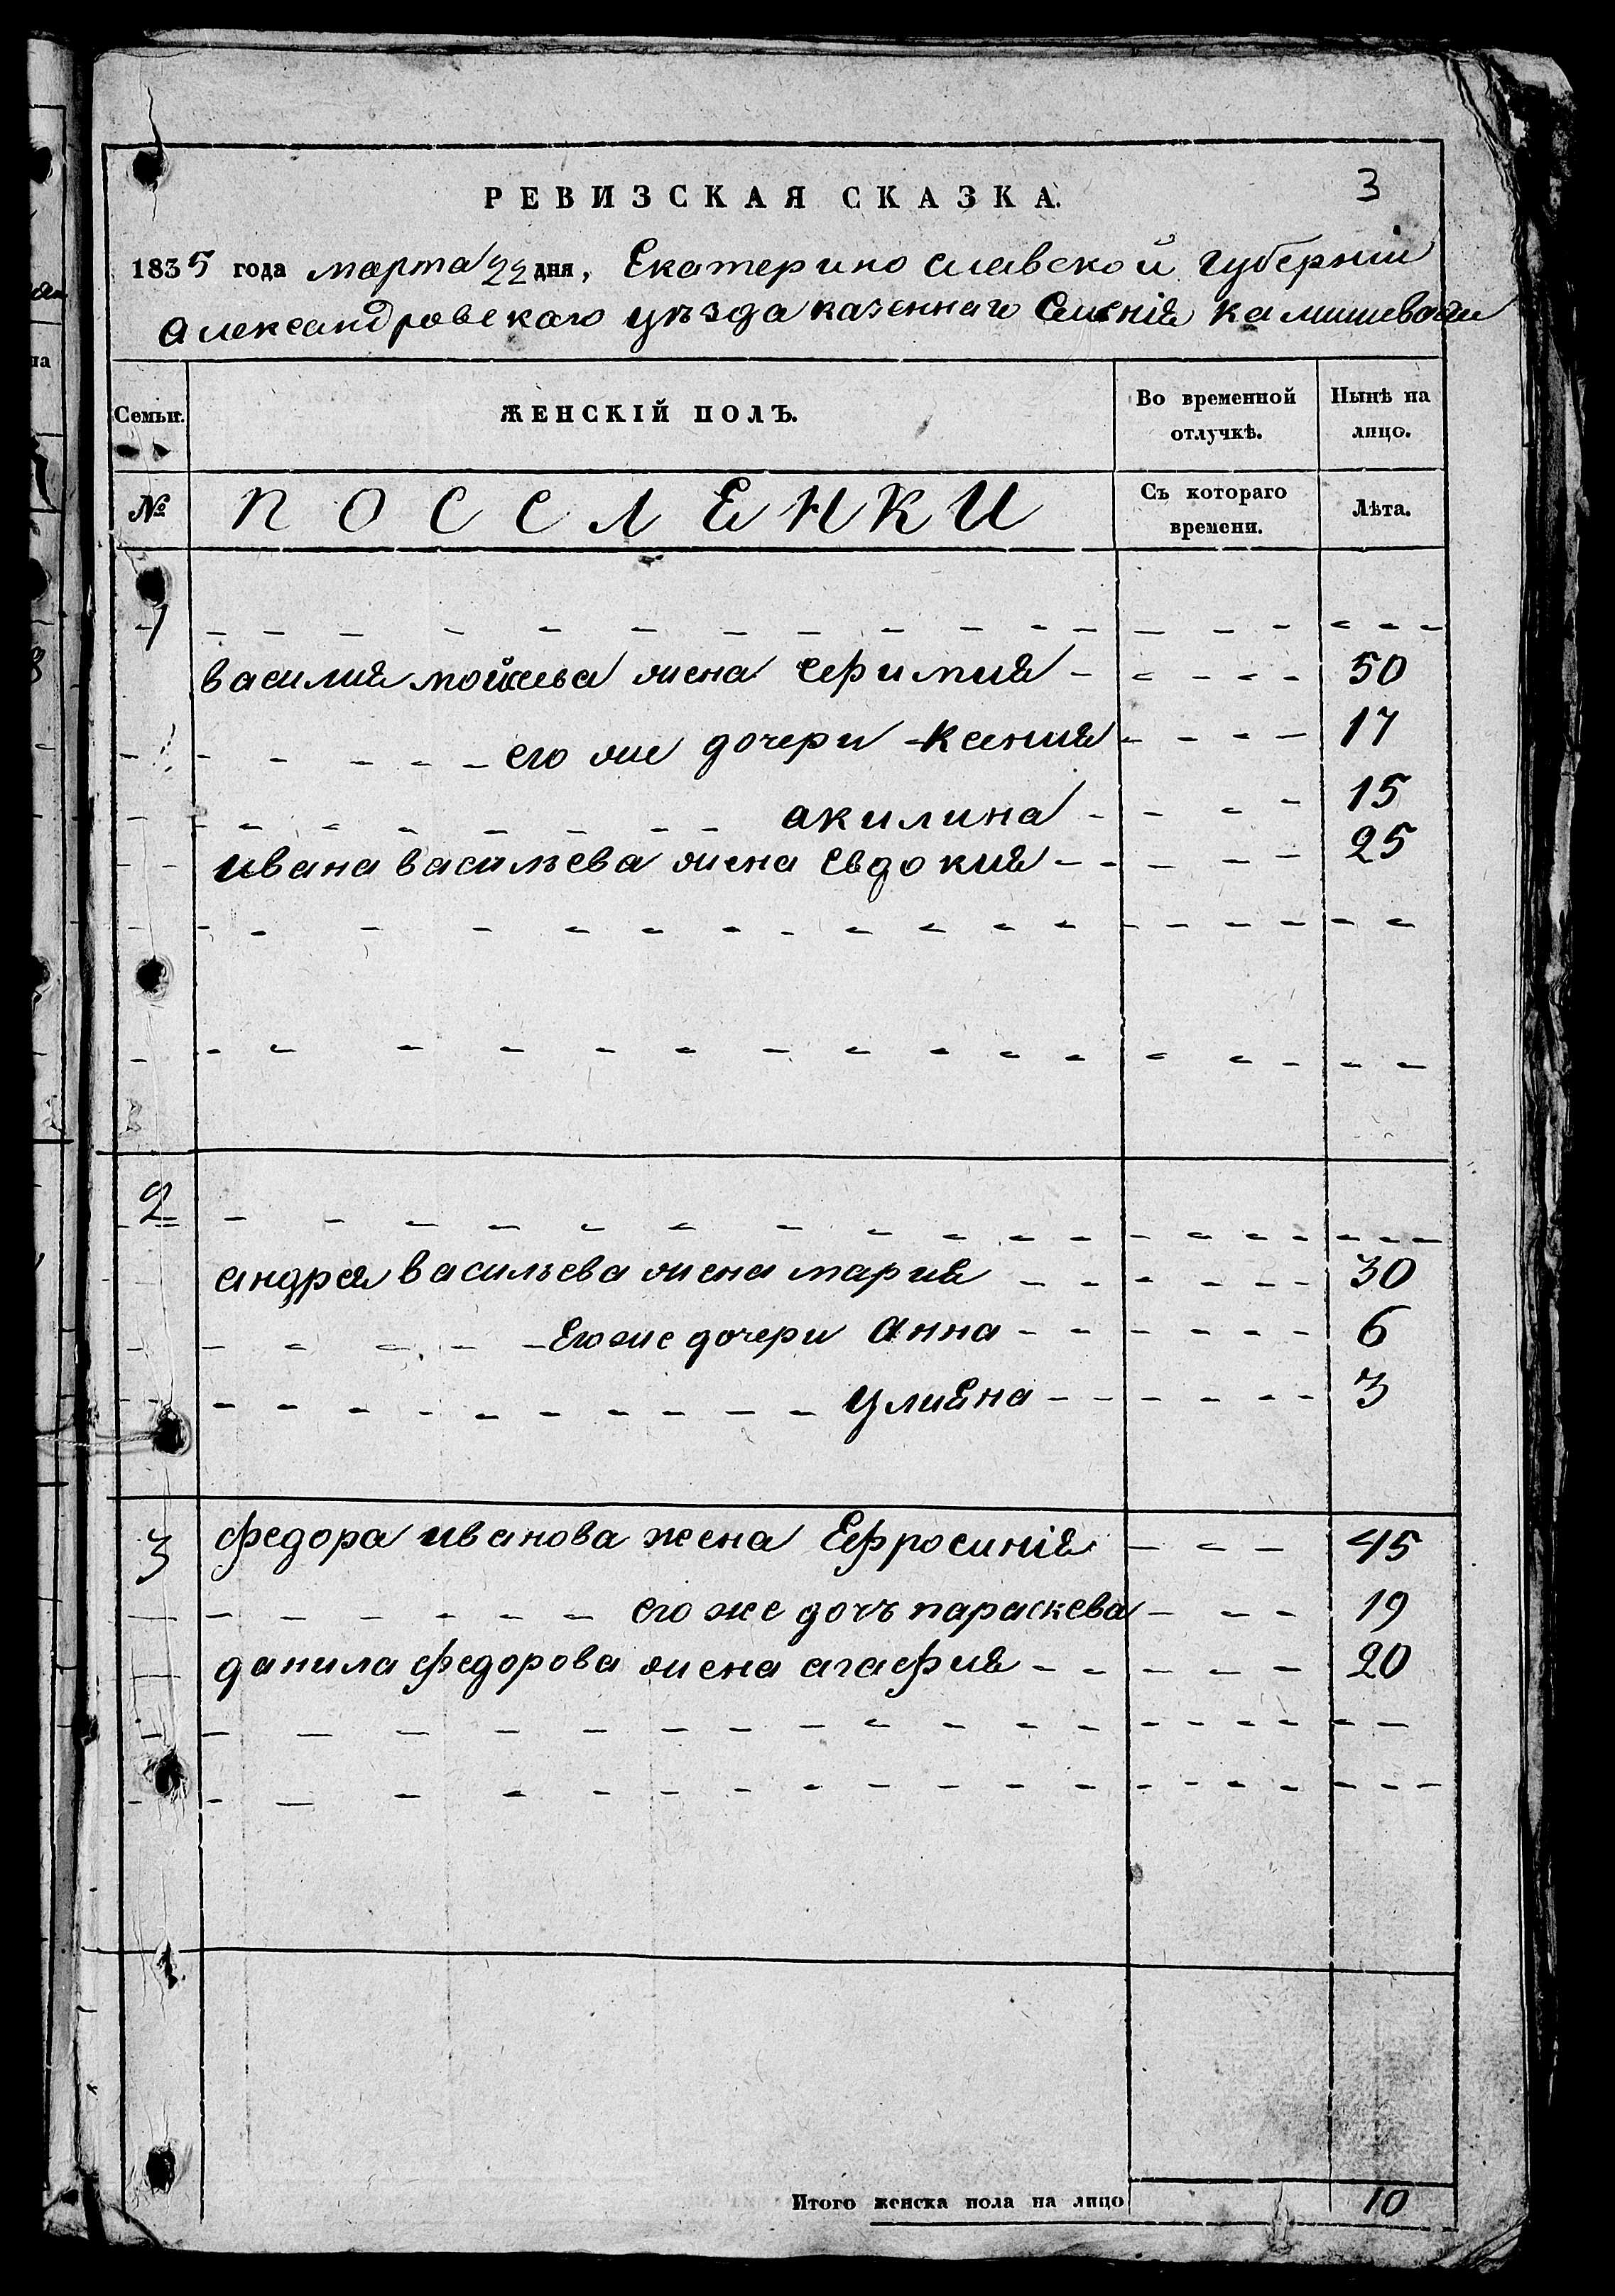 3
РЕВИЗСКАЯ СКАЗКА.
1835 года марта 22 дня, Екатеринославской губернiи
Александровскаго уѣзда казеннаго Селенiя Камишевахи
Семьи.
ЖЕНСКIЙ ПОЛЪ.
Во временной отлучкѣ.
Нынѣ на лицо.
№
ПОССЛЕНКИ
Съ котораго времени.
Лѣта.
1
василия мойсеева жена Ефимия 50
его же дочери Ксения 17
акилина 15
ивана васильева жена Евдокия 25
2
андрея васильева жена мария 30
Его же дочери Анна 6
улияна 3
3 федора иванова жена Ефросинiя 45
его же дочь параскева 19
данила федорова жена агафия 20
Итого женска пола на лицо 10